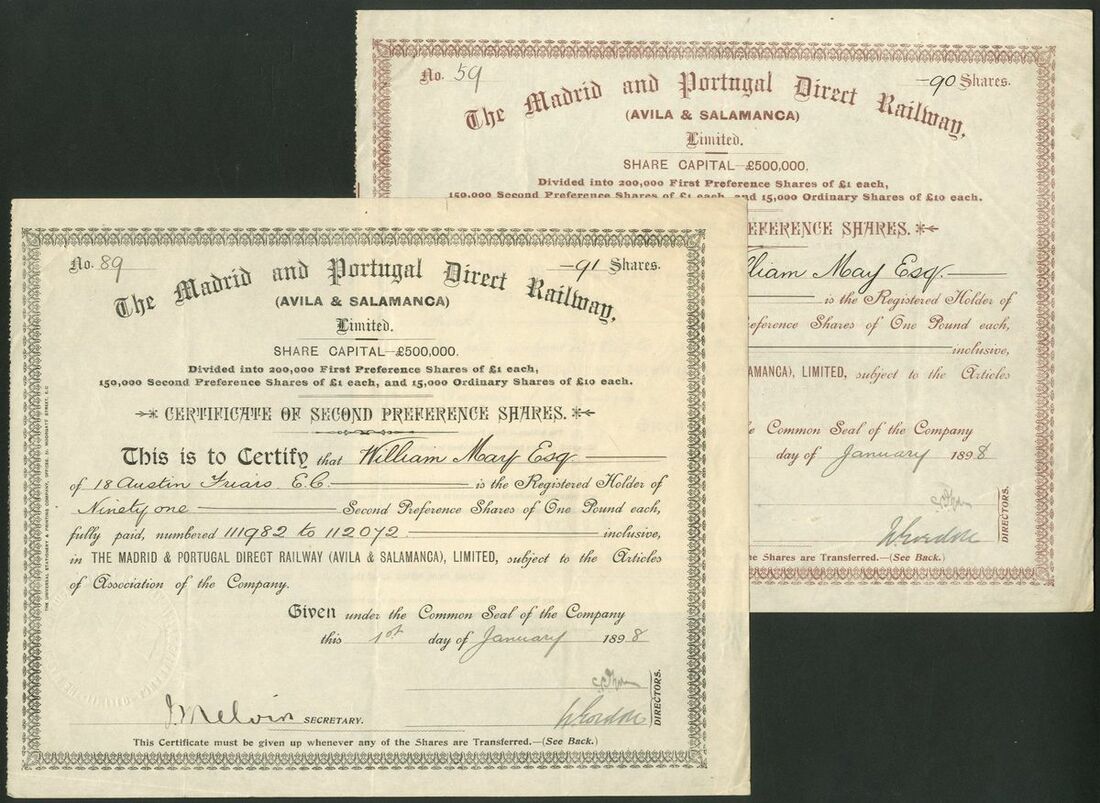 No. 59
90 Shares.
The Madrid and Portugal Direct Railway,
(AVILA & SALAMANCA)
Limited.
SHARE CAPITAL—£500,000.
Divided into 200,000 First Preference Shares of £1 each,
150,000 Second Preference Shares of £1 each, and 15,000 Ordinary Shares of £10 each.
EFERENCE SHARES.
lliam May Esq.
is the Registered Holder of
eference Shares of One Pound each,
inclusive,
AMANCA), LIMITED, subject to the Articles
e Common Seal of the Company
day of January 1898
DIRECTORS.
he Shares are Transferred.—(See Back.)
No. 89
91 Shares.
The Madrid and Portugal Direct Railway,
(AVILA & SALAMANCA)
Limited.
SHARE CAPITAL—£500,000.
Divided into 200,000 First Preference Shares of £1 each,
150,000 Second Preference Shares of £1 each, and 15,000 Ordinary Shares of £10 each.
CERTIFICATE OF SECOND PREFERENCE SHARES.
This is to Certify that William May Esq
of 18 Austin Friars. E.C. is the Registered Holder of
Ninety one Second Preference Shares of One Pound each,
fully paid, numbered 111982 to 112072 inclusive,
in THE MADRID & PORTUGAL DIRECT RAILWAY (AVILA & SALAMANCA), LIMITED, subject to the Articles
of Association of the Company.
Given under the Common Seal of the Company
this 1st day of January 1898
J Melvin SECRETARY.
DIRECTORS.
This Certificate must be given up whenever any of the Shares are Transferred.—(See Back.)